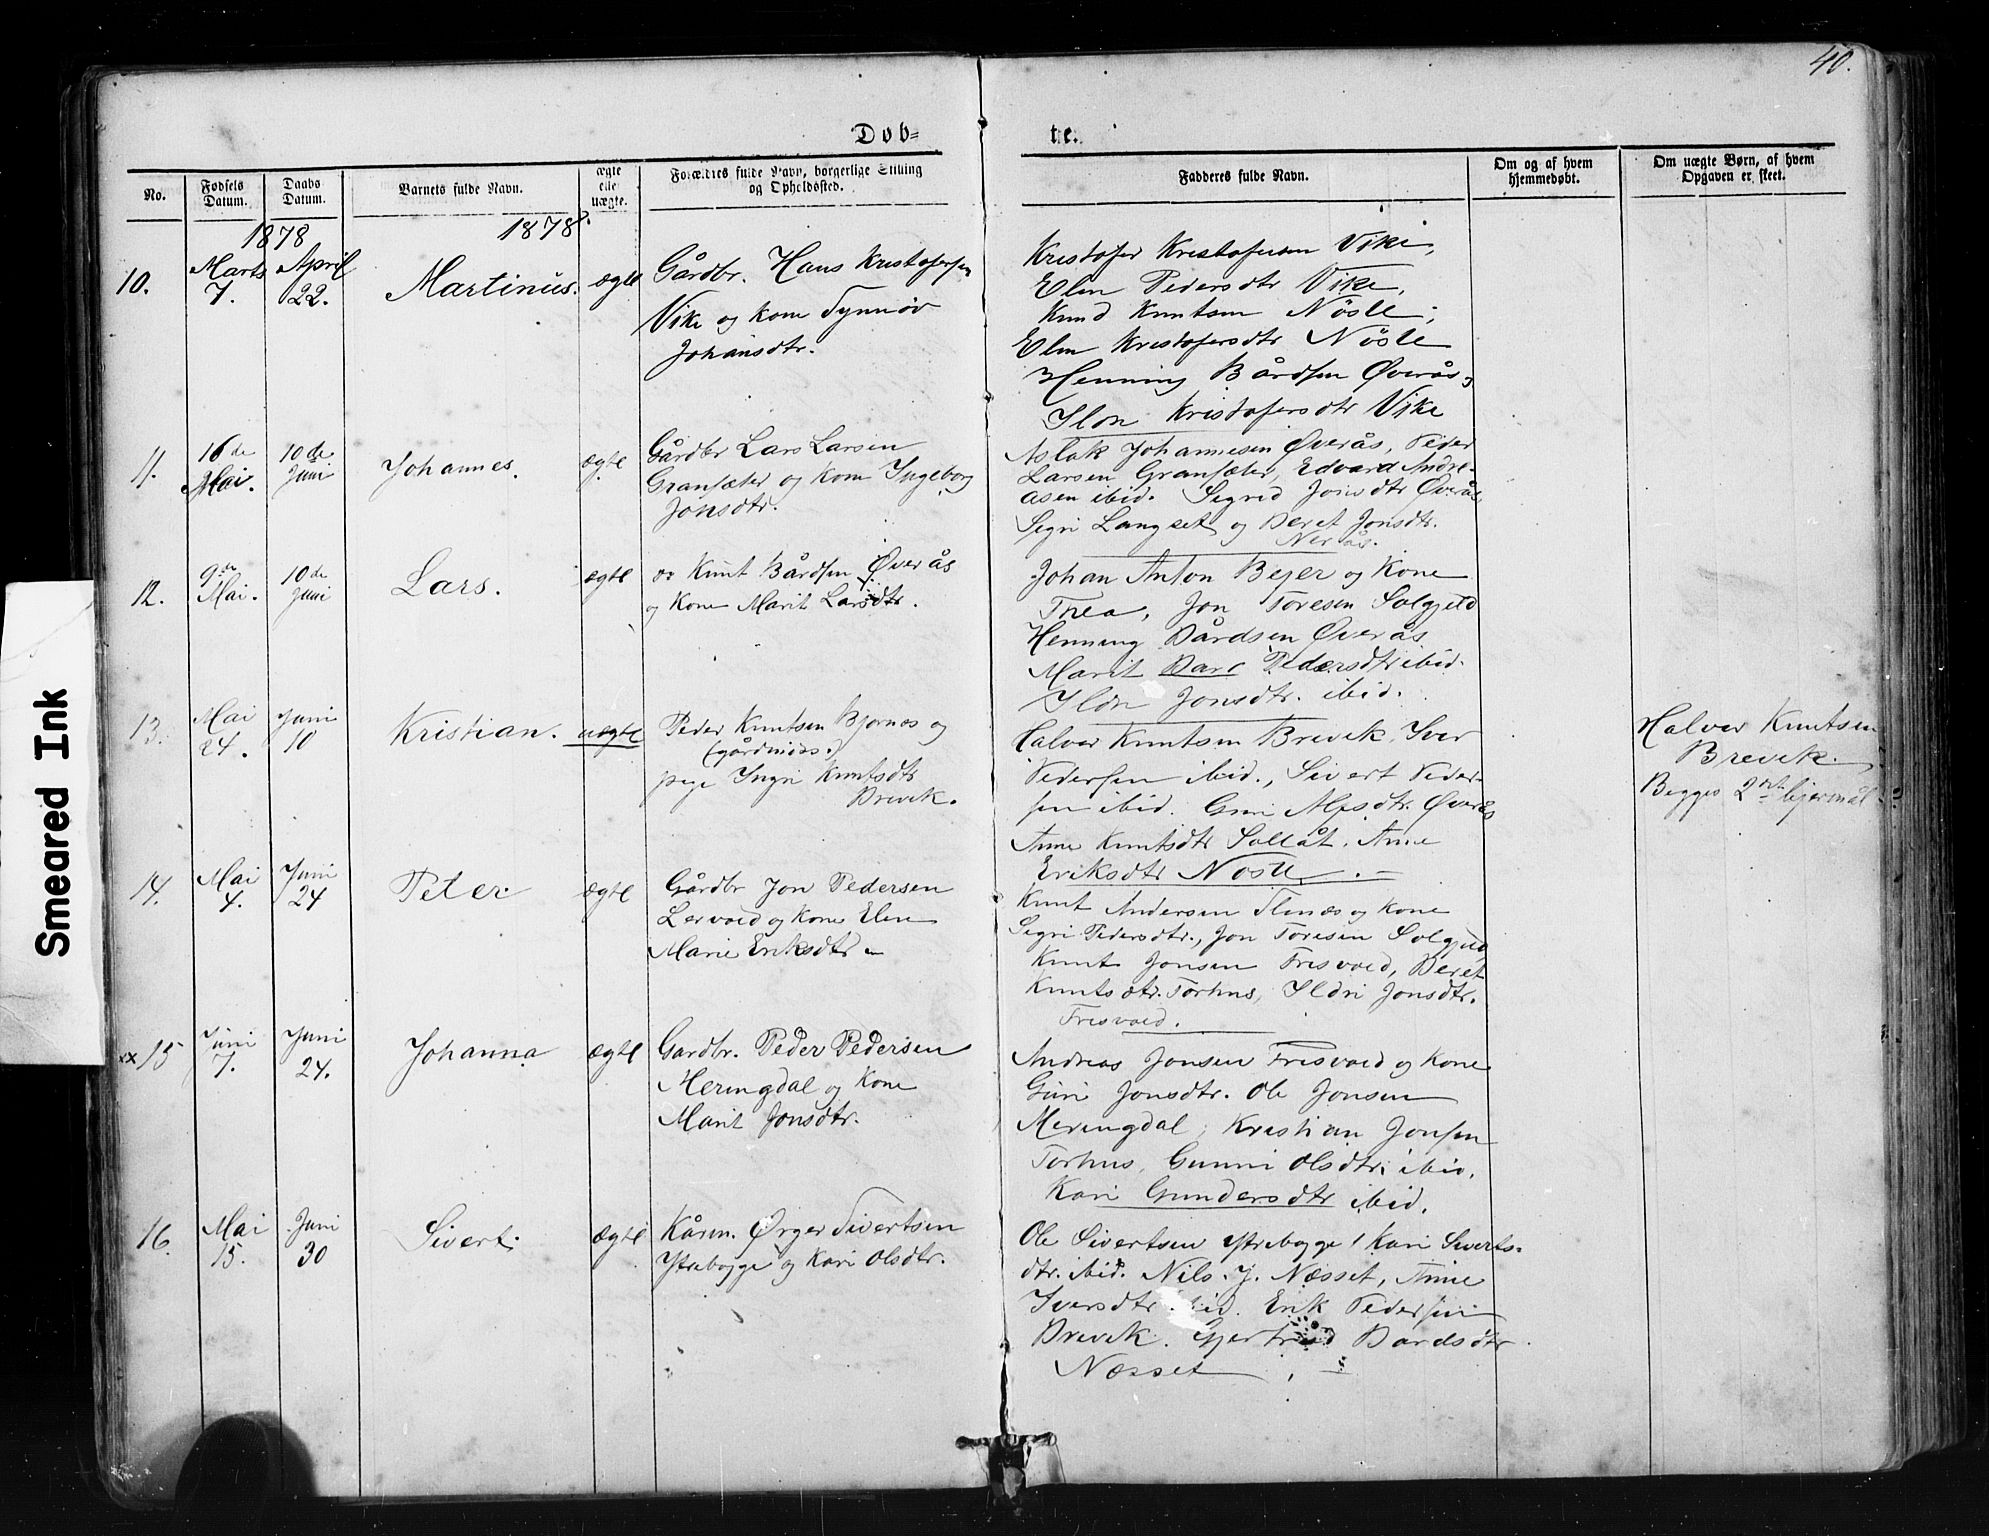 40.
Døb=
te.
No.
Fødsels Datum.
Daabs Datum.
Barnets fulde Navn.
ægte eller uægte.
Forældres fulde Navn, borgerlige Stilling og Opholdssted.
Fadderes fulde Navn.
Om og af hvem hjemmedøbt.
Om uægte Børn, af hvem Opgaven er skeet.
1878
1878
10.
Marts 7.
April 22.
Martinus.
ægte
Gårdbr. Hans Kristofersen
Vike og kone Synnøv
Johansdtr.
Kristofer Kristofersen Vike,
Elen Pedersdtr Vike,
Knud Knutsen Nøste,
Elen Kristofersdtr Nøste
Henning Bårdsen Øverås,
Ildri Kristofersdtr Vike
11.
16de Mai.
10de Juni
Johannes.
ægte
Gårdbr Lars Larsen
Gransæter og Kone Ingeborg
Jonsdtr.
Aslak Johannesen Øverås, Peder
Larsen Gransæter, Edvard Andre-
asen ibid. Sigrid Jonsdtr Øverås
Segri Langset og Beret Jonsdtr.
Nerås.
12.
9de Mai.
10de Juni
Lars.
ægte
Knut Bårdsen Øverås
og Kone Marit Larsdtr.
Johan Anton Bejer og Kone
Thea, Jon Toresen Solgjeld
Henning Bårdsen Øverås
Marit Bård Pedersdtr ibid.
Ildri Jonsdtr. ibid.
13.
Mai 24.
Juni 10
Kristian.
uægte
Peder Knutsen Bjørnes og
(gårdmans.)
pige Ingri Knutsdtr
Brevik.
Halvor Knutsen Brevik, Iver
Pedersen ibid., Sivert Peder-
sen ibid. Guri Alfsdtr. Øverås
Anne Knutsdtr Sollåt. Anne
Eriksdtr Nøste.
Halvor Knutsen
Brevik.
Begges 2det lejermål
14.
Mai 4.
Juni 24
Peter
ægte
Gårdbr Jon Pedersen
Lervold og Kone Elen
Marie Eriksdtr
Knut Andersen Tlenæs og Kone
Segri Pedersdtr., Jon Toresen Solgjeld
Knut Jonsen Frisvold, Beret
Knutsdtr. Torhus, Ildri Jonsdtr.
Frisvold.
xx 15
Juni 7.
Juni 24.
Johanna
ægte
Gardbr. Peder Pedersen
Meringdal og Kone
Marit Jonsdtr.
Andreas Jonsen Frisvold og Kone
Guri Jonsdtr. Ole Jonsen
Meringdal, Kristian Jonsen
Torhus, Gunni Olsdtr. ibid,
Kari Gundersdtr ibid.
16.
Mai 15.
Juni 30
Sivert.
ægte
Kårm. Ørger Sivertsen
Ytrebogge og Kari Olsdtr.
Ole Sivertsen Ytrebogge, Kari Siverts-
dtr. ibid. Nils J. Næsset, Anne
Iversdtr ibid. Erik Pedersen
Brevik. Gjertrud Bardsdtr
Næsset
Smeared Ink